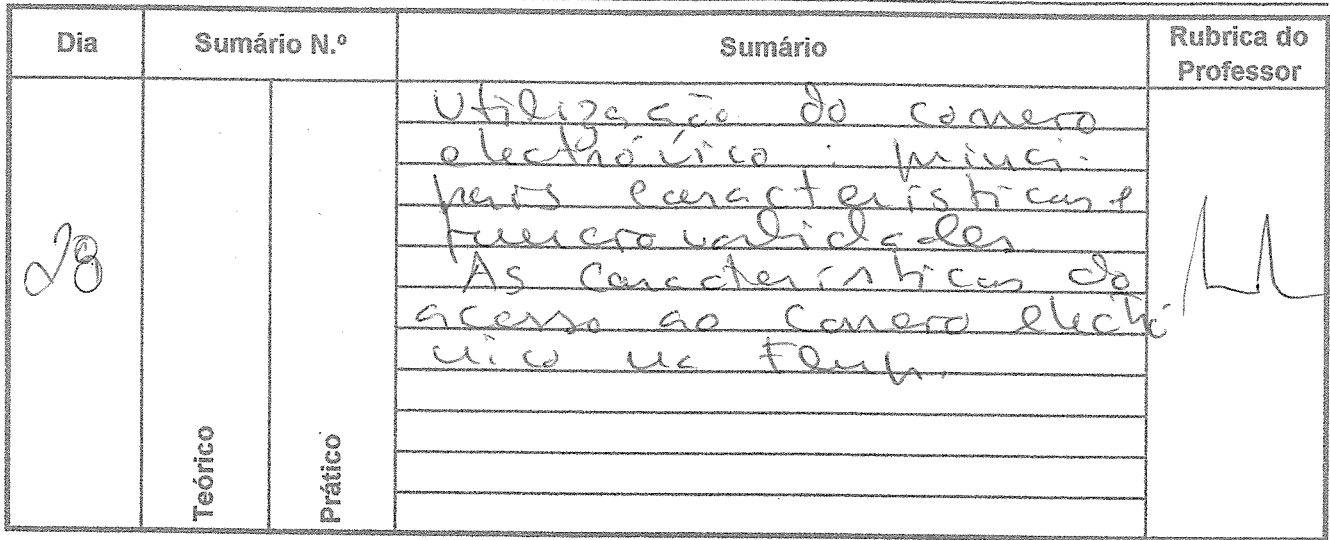 Dia Sumário N.º Sumário Rubrica do Professor
28
Teórico
Prático
Utilização do correio
electrónico : princi-
pais características e
funcionalidades
As características do
acesso ao correio electró
nico na Flup.